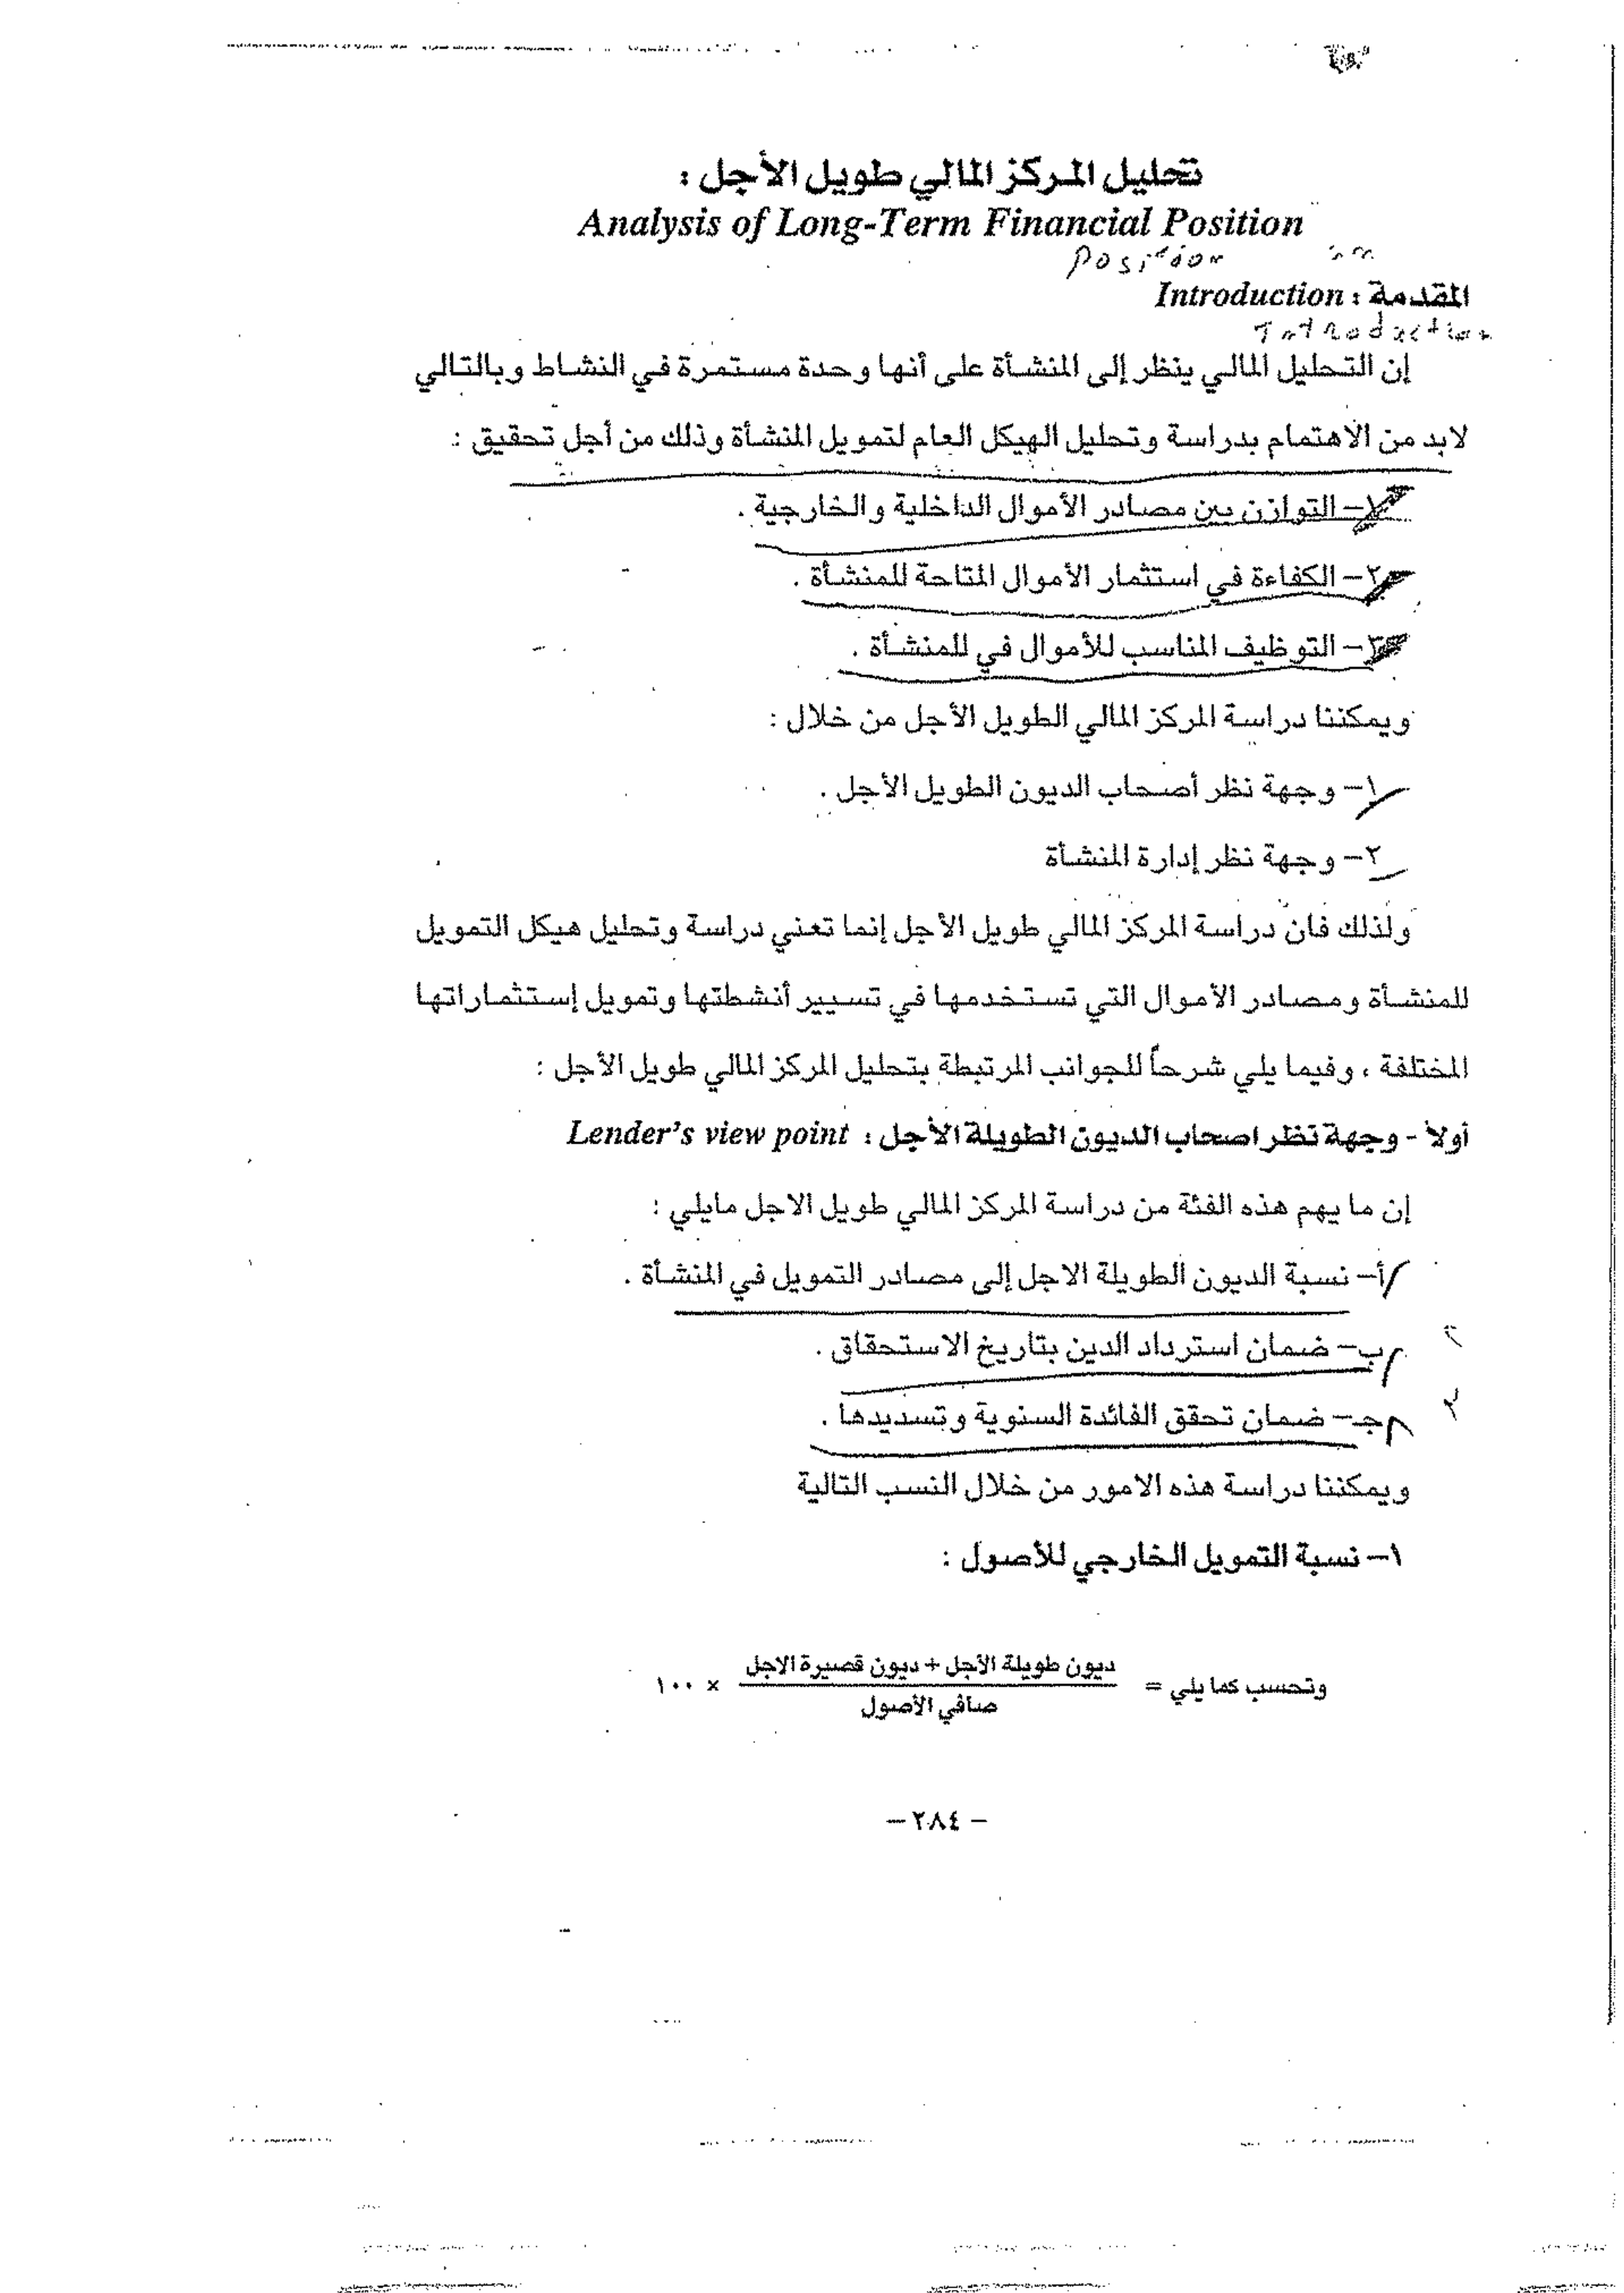 تحليل المركز المالي طويل الأجل :
Analysis of Long-Term Financial Position
Position
المقدمة : Introduction
Introduction
إن التحليل المالي ينظر إلى المنشأة على أنها وحدة مستمرة في النشاط وبالتالي
لابد من الاهتمام بدراسة وتحليل الهيكل العام لتمويل المنشأة وذلك من أجل تحقيق :
١– التوازن بين مصادر الأموال الداخلية والخارجية .
٢– الكفاءة في استثمار الأموال المتاحة للمنشأة .
٣– التوظيف المناسب للأموال في للمنشأة .
ويمكننا دراسة المركز المالي الطويل الأجل من خلال :
١– وجهة نظر أصحاب الديون الطويل الأجل .
٢– وجهة نظر إدارة المنشأة
ولذلك فان دراسة المركز المالي طويل الأجل إنما تعني دراسة وتحليل هيكل التمويل
للمنشأة ومصادر الأموال التي تستخدمها في تسيير أنشطتها وتمويل إستثماراتها
المختلفة ، وفيما يلي شرحاً للجوانب المرتبطة بتحليل المركز المالي طويل الأجل :
أولاً - وجهة نظر اصحاب الديون الطويلة الأجل : Lender's view point
إن ما يهم هذه الفئة من دراسة المركز المالي طويل الاجل مايلي :
أ– نسبة الديون الطويلة الاجل إلى مصادر التمويل في المنشأة .
ب– ضمان استرداد الدين بتاريخ الاستحقاق .
جـ– ضمان تحقق الفائدة السنوية وتسديدها .
ويمكننا دراسة هذه الامور من خلال النسب التالية
١– نسبة التمويل الخارجي للأصول :
ديون طويلة الأجل + ديون قصيرة الاجل
وتحسب كما يلي = × ١٠٠
صافي الأصول
– ٢٨٤ –